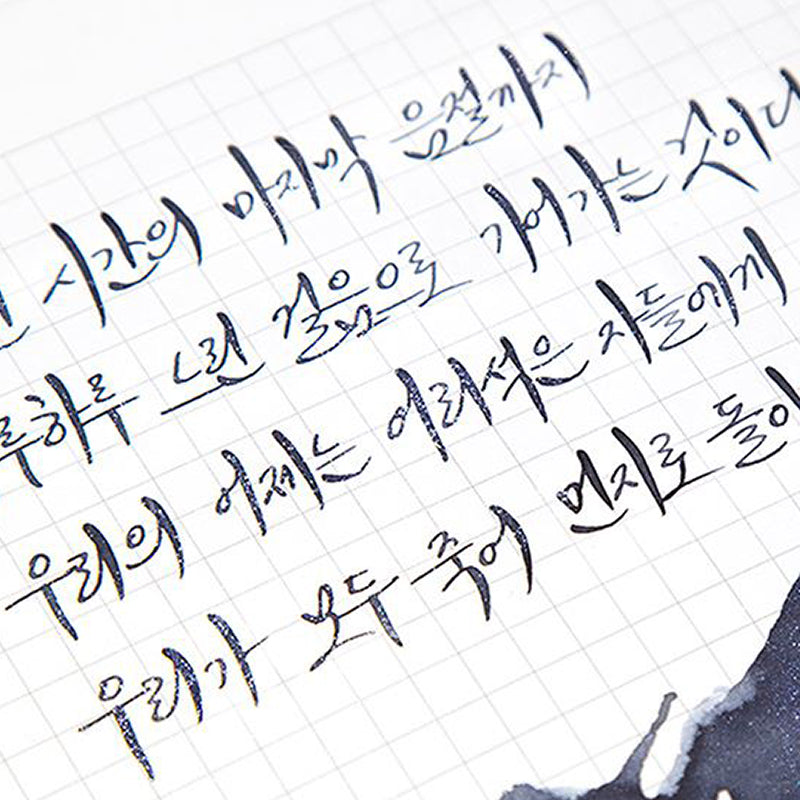 시간의 마지막 음절까지
루하루 느린 걸음으로 기어가는 것이다
우리의 어제는 어리석은 자들에게
우리가 모두 죽어 먼지로 돌아